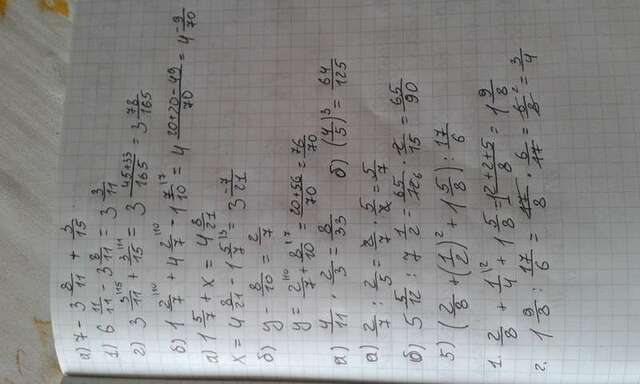 а) 7 - 3 8/11 + 3/15
1) 6 11/11 - 3 8/11 = 3 3/11
2) 3 3/11 + 3/15 = 3 (45+33)/165 = 3 78/165
б) 1 2/7 + 4 2/7 - 1 7/10 = 4 (20+20-49)/70 = 4 -9/70
а) 1 5/7 + x = 4 8/21
x = 4 8/21 - 1 5/7 = 3 -7/21
б) y - 8/10 = 2/7
y = 2/7 + 8/10 = (20+56)/70 = 76/70
а) 4/11 · 2/3 = 8/33 б) (4/5)³ = 64/125
а) 2/7 : 2/5 = 2/7 · 5/2 = 5/7
б) 5 5/12 : 7 1/2 = 65/12 · 2/15 = 65/90
5) (2/8 + (1/2)² + 1 5/8) : 17/6
1. 2/8 + 1/4 + 1 5/8 = 1 (2+2+5)/8 = 1 9/8
2. 1 9/8 : 17/6 = 17/8 · 6/17 = 6/8 = 3/4